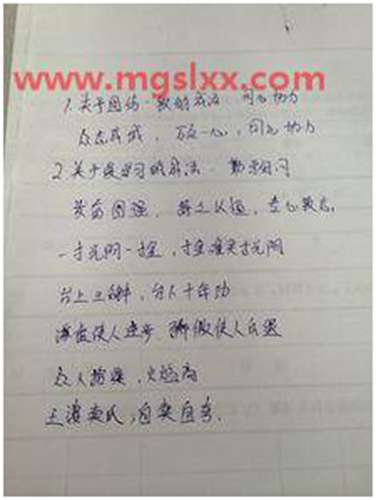 www.mgslxx.com
1.关于团结一致的成语：同心协力
众志成城，万众一心，同心协力
2.关于爱学习的成语：勤学好问
发奋图强，持之以恒，专心致志
一寸光阴一寸金，寸金难买寸光阴
台上三分钟，台下十年功
谦虚使人进步 骄傲使人后退
众人拾柴，火焰高
王婆卖瓜，自卖自夸.